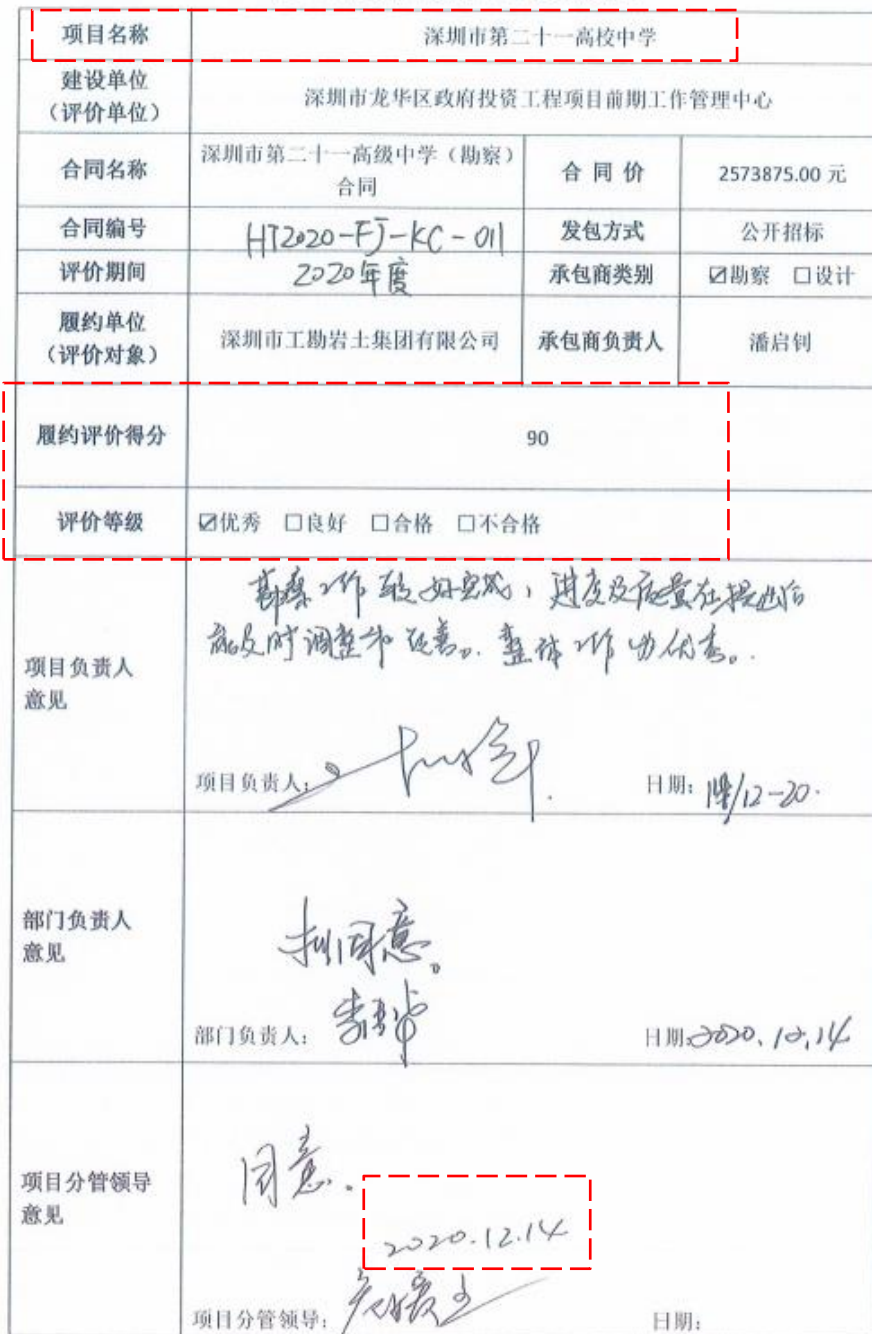 项目名称 深圳市第二十一高校中学
建设单位
（评价单位） 深圳市龙华区政府投资工程项目前期工作管理中心
合同名称 深圳市第二十一高级中学（勘察）
合同 合同价 2573875.00 元
合同编号 HT2020-FJ-KC-011 发包方式 公开招标
评价期间 2020年度 承包商类别 ☑勘察 □设计
履约单位
（评价对象） 深圳市工勘岩土集团有限公司 承包商负责人 潘启钊
履约评价得分 90
评价等级 ☑优秀 □良好 □合格 □不合格
勘察工作较好完成，进度及质量在提出后
能及时调整和改善。整体工作为优秀。
项目负责人
意见
项目负责人： 日期：14/12-20.
部门负责人
意见
拟同意。
部门负责人： 日期：2020.12.14
项目分管领导
意见
同意.
2020.12.14
项目分管领导： 日期：